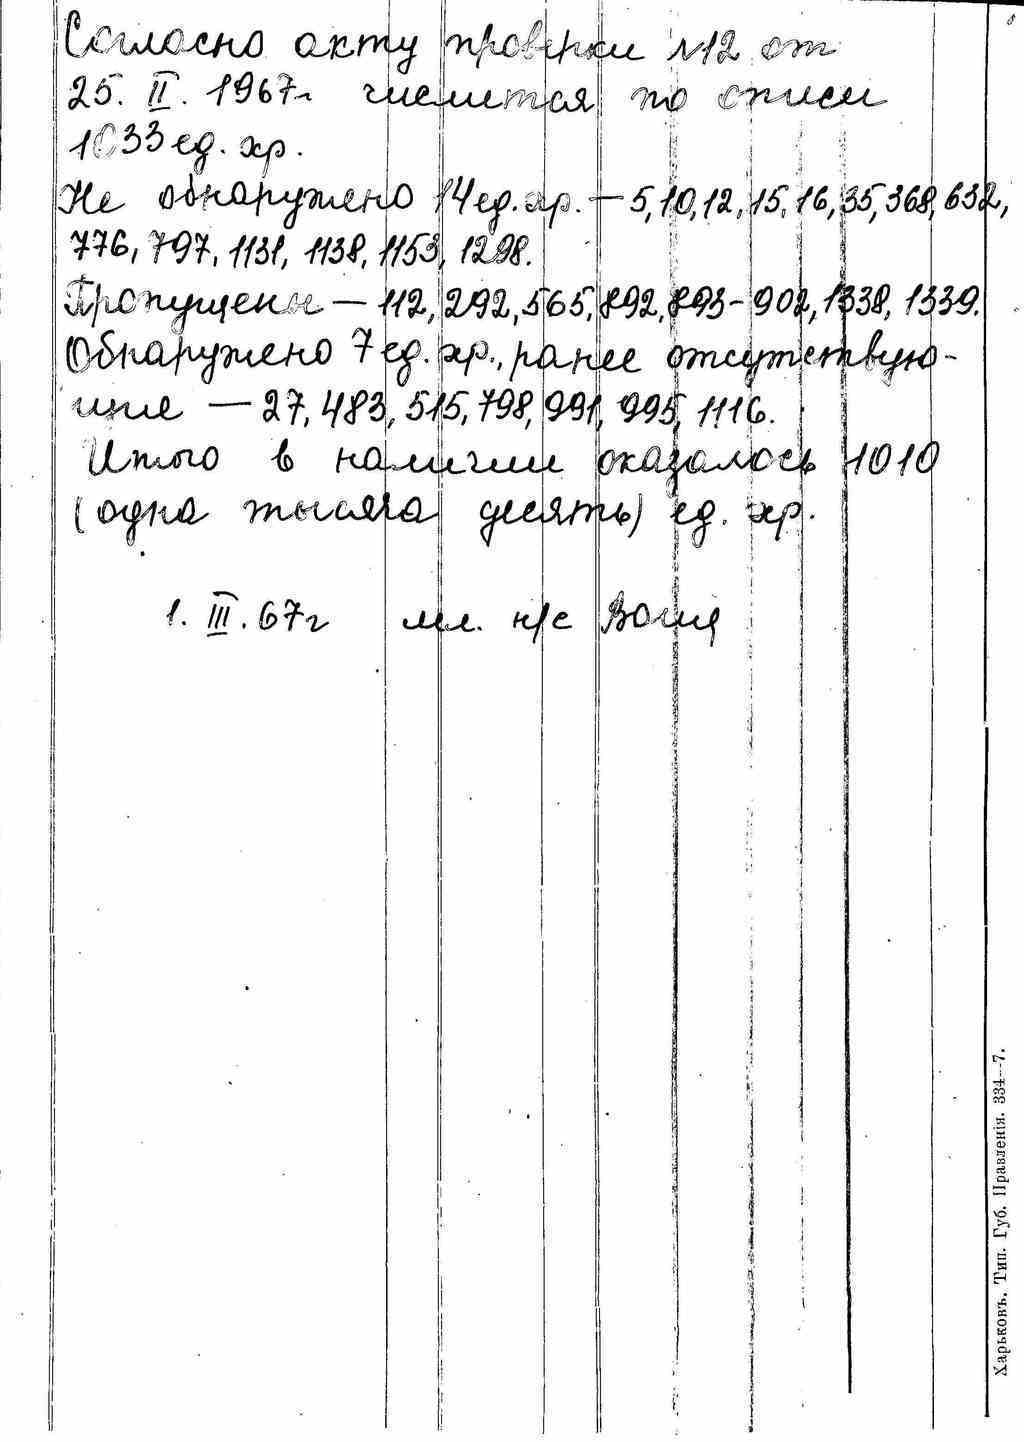 Согласно акту проверки №12 от
25. II. 1967г числится по описи
1033 ед. хр.
Не обнаружено 14 ед. хр. — 5, 10, 12, 15, 16, 35, 368, 632,
776, 797, 1131, 1138, 1153, 1298.
Пропущены — 112, 292, 565, 892, 893-902, 1338, 1339.
Обнаружено 7 ед. хр., ранее отсутствую-
щие — 27, 483, 515, 798, 991, 995, 1116.
Итого в наличии оказалось 1010
(одна тысяча десять) ед. хр.
1. III. 67г мл. н/с
Харьковъ. Тип. Губ. Правленія. 334—7.